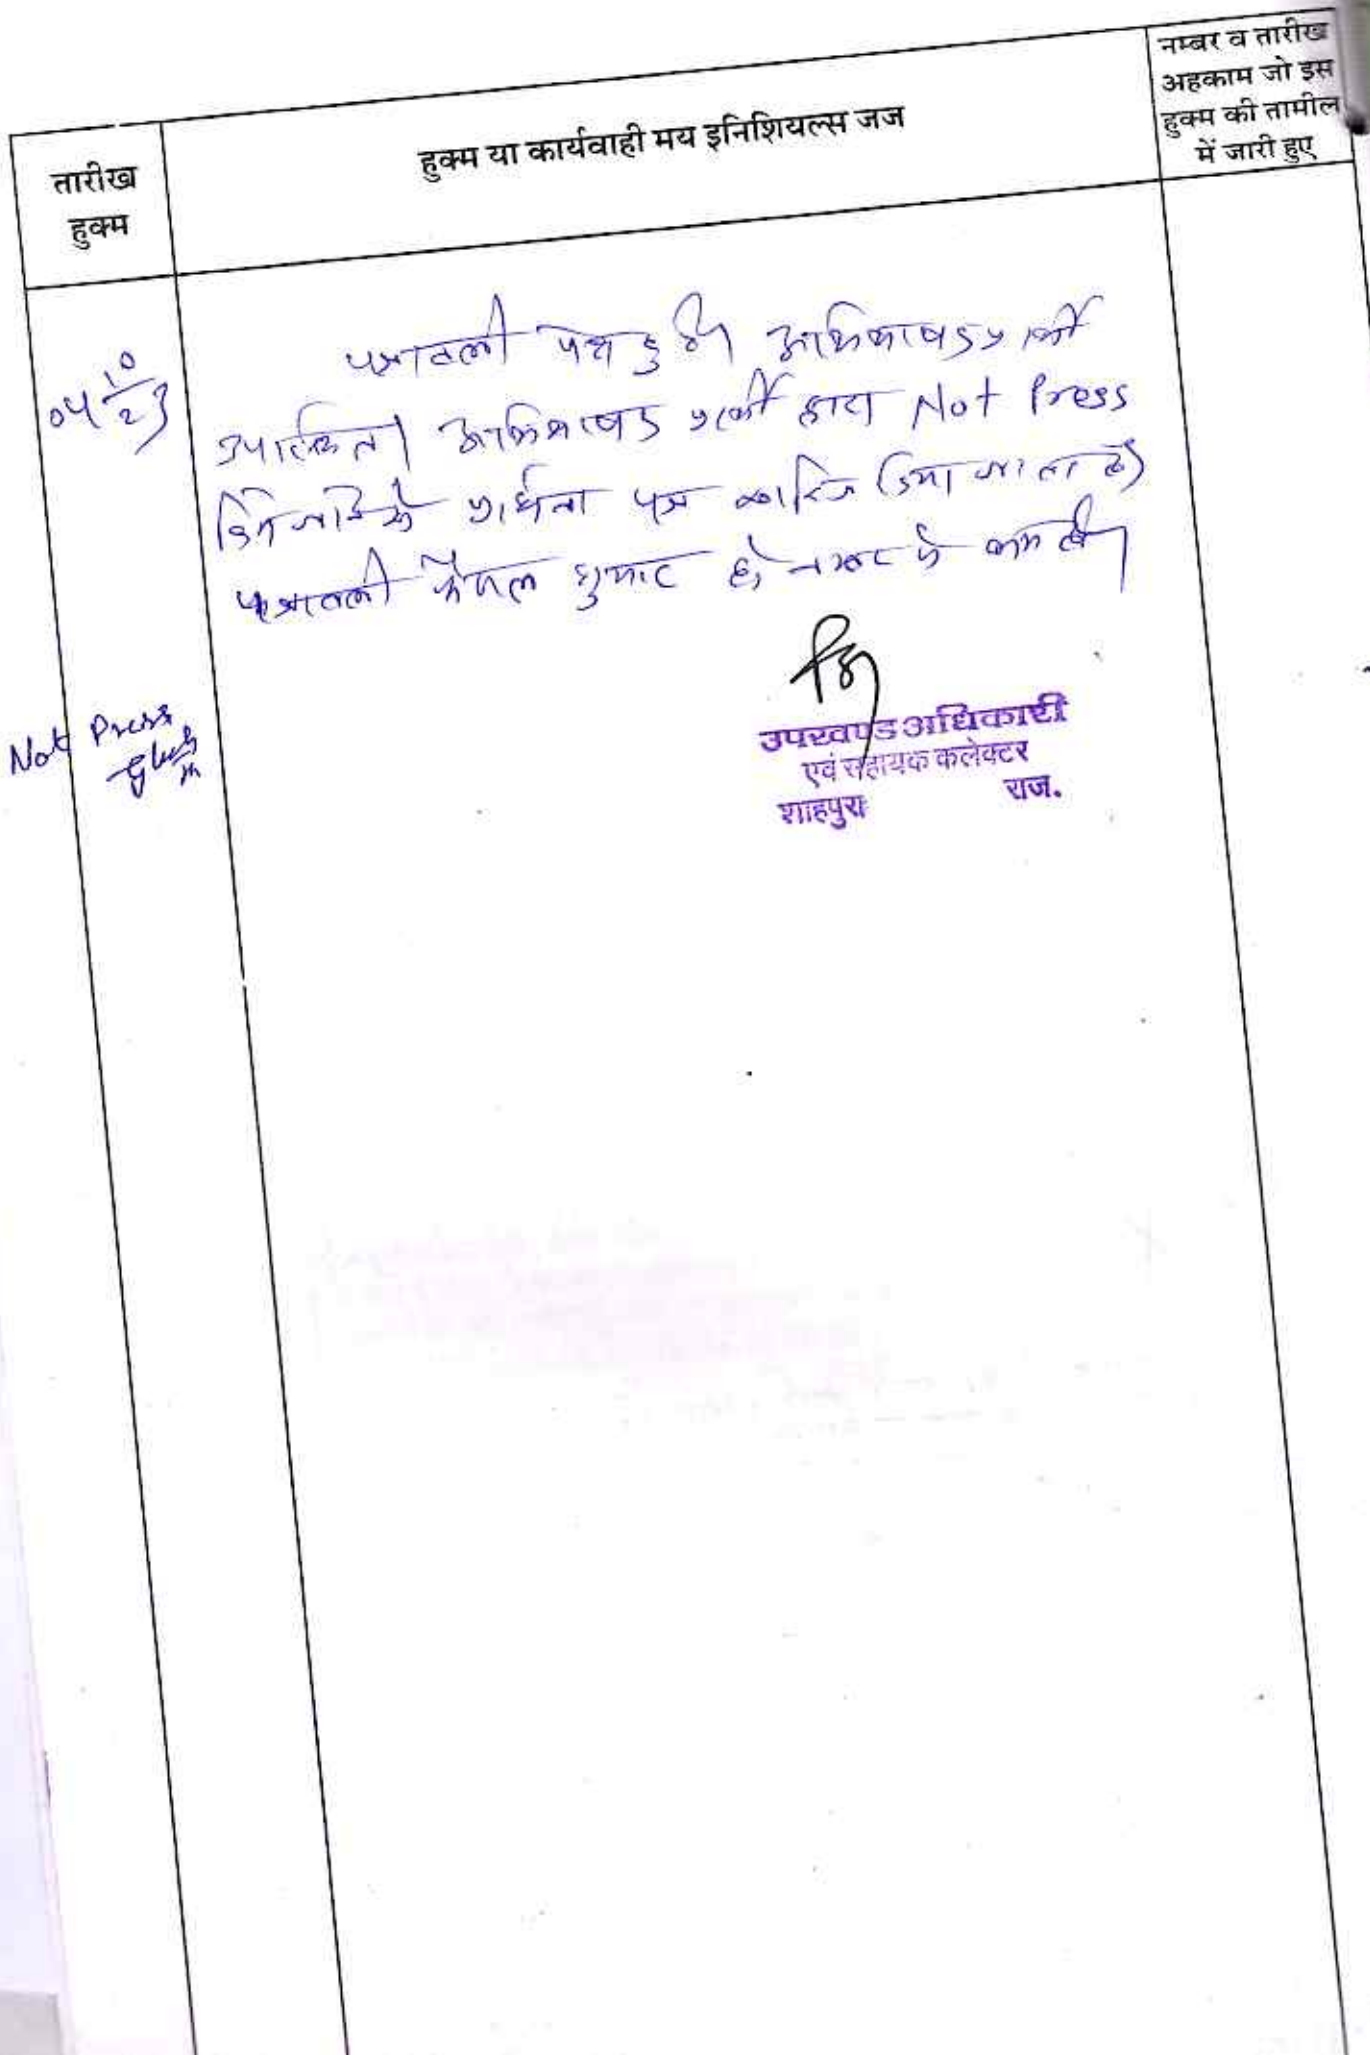 तारीख
हुक्म
हुक्म या कार्यवाही मय इनिशियल्स जज
नम्बर व तारीख
अहकाम जो इस
हुक्म की तामील
में जारी हुए
04 10/23
पत्रावली पेश हुई। अभिभाषक प्रार्थी
उपस्थित। अभिभाषक प्रार्थी द्वारा Not Press
किये जाने से प्रार्थना पत्र खारिज किया जाता है।
पत्रावली फैसल शुमार हो, नम्बर से कम हो।
Not Press
उपखण्ड अधिकारी
एवं सहायक कलेक्टर
शाहपुरा राज.